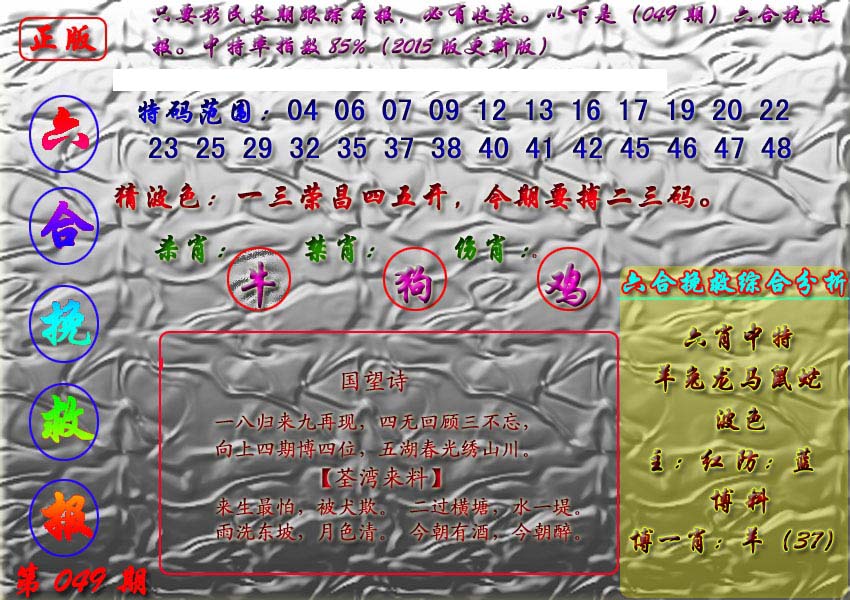 正版
只要彩民长期跟踪本报，必有收获。以下是（049期）六合挽救
报。中特率指数85%（2015版更新版）
六合挽救报
第049期
特码范围：04 06 07 09 12 13 16 17 19 20 22
23 25 29 32 35 37 38 40 41 42 45 46 47 48
猜波色：一三荣昌四五开，今期要搏二三码。
杀肖：牛 禁肖：狗 伤肖：鸡
国望诗
一八归来九再现，四无回顾三不忘，
向上四期博四位，五湖春光绣山川。
【荃湾来料】
来生最怕，被犬欺。 二过横塘，水一堤。
雨洗东坡，月色清。 今朝有酒，今朝醉。
六合挽救综合分析
六肖中特
羊兔龙马鼠蛇
波色
主：红防：蓝
博料
博一肖：羊（37）